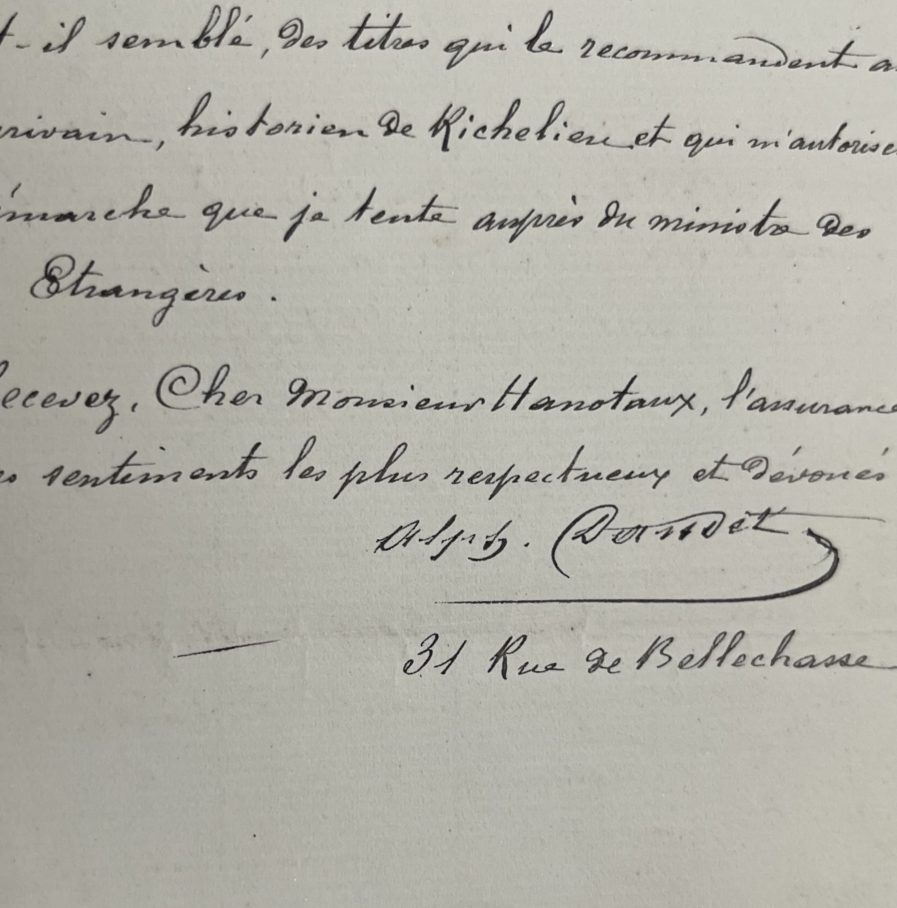 t-il semblé, des titres qui le recommandent a
rivain, historien de Richelieu et qui m'autorise
émarche que je tente auprès du ministre des
Etrangères.
Recevez, Cher Monsieur Hanotaux, l'assurance
es sentiments les plus respectueux et dévoués
Alph. Daudet
31 Rue de Bellechasse